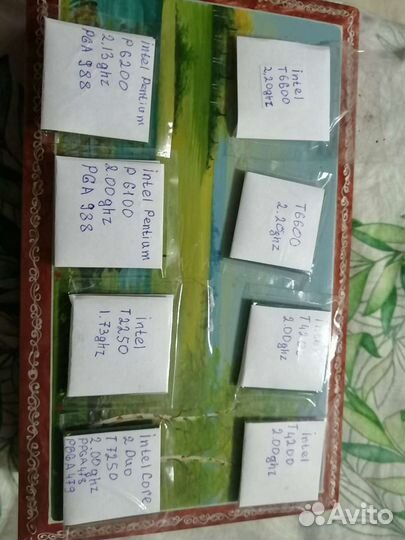 intel Pentium
P6200
2.13ghz
PGA 988
intel
T6600
2,20ghz
intel Pentium
P6100
2.00ghz
PGA 988
T6600
2.20ghz
intel
T2250
1.73ghz
T4200
2.00ghz
intel Core
2 Duo
T7250
2.00ghz
PPGA478
PBGA479
intel
T4200
2.00ghz
Avito